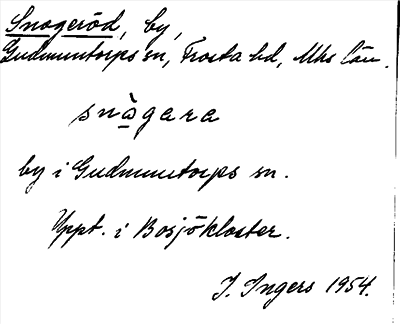 Snogeröd, by,
Gudmuntorps sn, Frosta hd, Mhs län.
snàgara
by i Gudmuntorps sn.
Uppt. i Bosjökloster.
I. Ingers 1954.